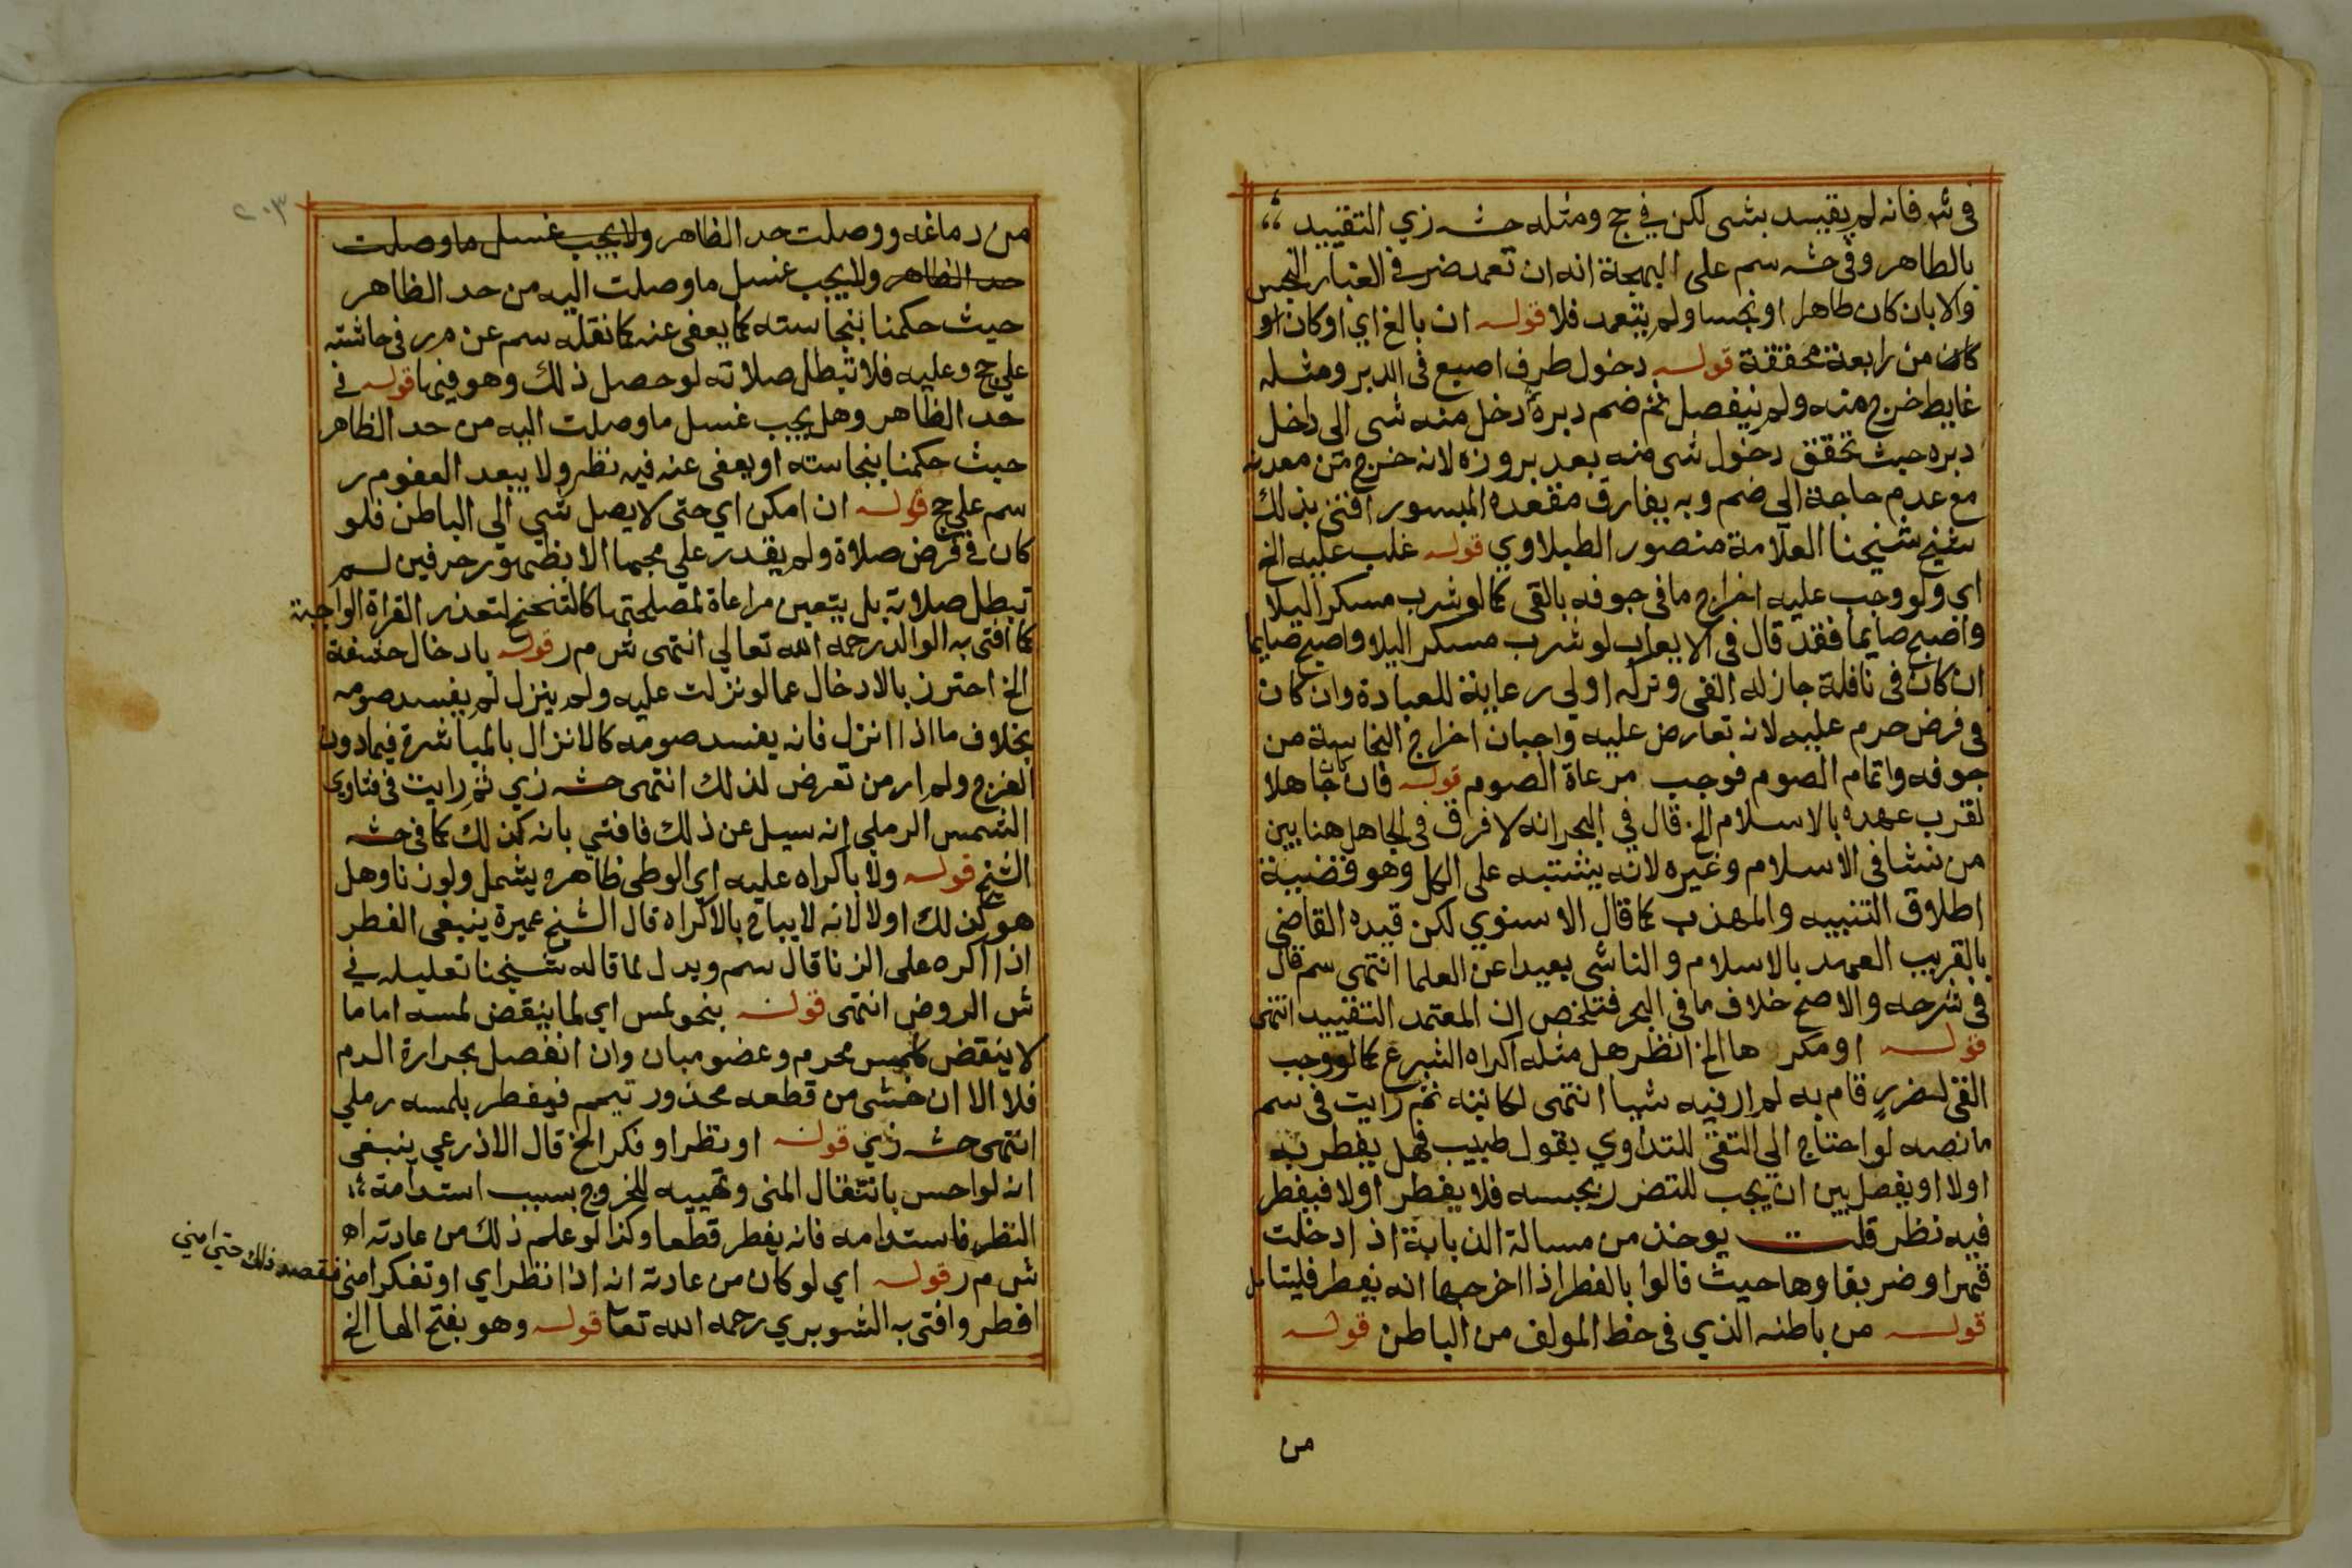 في شر فانه لم يقيد بشى لكن في حج ومثله حشـ زي التقييد
بالطاهر وفي حشـ سم على البهجة انه ان تعمد ضر في الغبار النجس
والا بان كان طاهرا او نجسا ولم يتعمد فلا قوله ان بالغ اي او كان او
كان من رابعة محققة قوله دخول طرف اصبع في الدبر ومثله
غايط خرج منه ولم ينفصل ثم ضم دبره دخل منه شى الى داخل
دبره حيث تحقق دخول شى منه بعد بروزه لانه خرج من معدته
مع عدم حاجة الى ضم وبه يفارق مقعده المبسور افتى بذلك
شيخ شيخنا العلامة منصور الطبلاوي قوله غلب عليه الخ
اي ولو وجب عليه اخراج ما في جوفه بالقى كما لو شرب مسكرا ليلا
واصبح صايما فقد قال في الايعاب لو شرب مسكرا ليلا واصبح صايما
ان كان في نافلة جاز له القى وتركه اولي رعاية للعبادة وان كان
في فرض حرم عليه لانه تعارض عليه واجبان اخراج النجاسة من
جوفه واتمام الصوم فوجب مرعاة الصوم قوله فان كان جاهلا
لقرب عهده بالاسلام الخ قال في البحر انه لا فراق في الجاهل هنا بين
من نشا في الاسلام وغيره لانه يشتبه على الكل وهو قضية
اطلاق التنبيه والمهذب كما قال الاسنوي لكن قيده القاضي
بالقريب العهد بالاسلام والناشى بعيدا عن العلما انتهى سم قال
في شرحه والاصح خلاف ما في البحر فتلخص ان المعتمد التقييد انتهى
قوله او مكرها الخ انظر هل مثله اكراه الشرع كما لو وجب
القى لضرر قام به لم ار فيه شيا انتهى لكاتبه ثم رايت في سم
ما نصه لو احتاج الى التقى للتداوي بقول طبيب فهل يفطر به
اولا او يفصل بين ان يجب للتضرر بحبسه فلا يفطر اولا فيفطر
فيه نظر قلت يوخذ من مسالة الذبابة اذ ادخلت
قهرا وضر بقاوها حيث قالوا بالفطر اذا اخرجها انه يفطر فليتامل
قوله من باطنه الذي في خط المولف من الباطن قوله
من
٢٠٣
من دماغه ووصلت حد الظاهر ولا يجب غسل ما وصلت
حد الظاهر ولا يجب غسل ما وصلت اليه من حد الظاهر
حيث حكمنا بنجاسته كما يعفى عنه كما نقله سم عن م ر في حاشته
علي حج وعليه فلا تبطل صلاته لو حصل ذلك وهو فيها قوله في
حد الظاهر وهل يجب غسل ما وصلت اليه من حد الظاهر
حيث حكمنا بنجاسته او يعفى عنه فيه نظر ولا يبعد العفو م ر
سم علي حج قوله ان امكن اي حتى لا يصل شي الي الباطن فلو
كان في فرض صلاة ولم يقدر علي مجها الا بظهور حرفين لم
تبطل صلاته بل يتعين مراعاة لمصلحتها كالتنحنح لتعذر القراة الواجبة
كما افتى به الوالد رحمه الله تعالي انتهى ش م ر قوله بادخال حشفة
الخ احترز بالادخال عما لو نزلت عليه ولم ينزل لم يفسد صومه
بخلاف ما اذا انزل فانه يفسد صومه كالانزال بالمباشرة فيما دون
الفرج ولم ار من تعرض لذلك انتهى حشـ زي ثم رايت في فتاوى
الشمس الرملي انه سيل عن ذلك فافتي بانه كذلك كما في حشـ
الشيخ قوله ولا باكراه عليه اي الوطي ظاهره يشمل ولو زنا وهل
هو كذلك اولا لانه لا يباح بالاكراه قال الشيخ عميرة ينبغى الفطر
اذا اكره على الزنا قال سم ويدل لما قاله شيخنا تعليله في
ش الروض انتهى قوله بنحو لمس اي لما ينقض لمسه اما ما
لا ينقض كلمس محرم وعضو مبان وان انفصل بحرارة الدم
فلا الا ان خشى من قطعه محذور تيمم فيفطر بلمسه رملي
انتهى حشـ زي قوله او نظر او فكر الخ قال الاذرعي ينبغى
انه لو احس بانتقال المنى وتهييه للخروج بسبب استدامة
النظر فاستدامه فانه يفطر قطعا وكذا لو علم ذلك من عادته اه
ش م ر قوله اي لو كان من عادته انه اذا انظر اي او تفكر امنى فقصد ذلك حتى امني
افطر وافتى به الشوبري رحمه الله تعا قوله وهو بفتح الها الخ